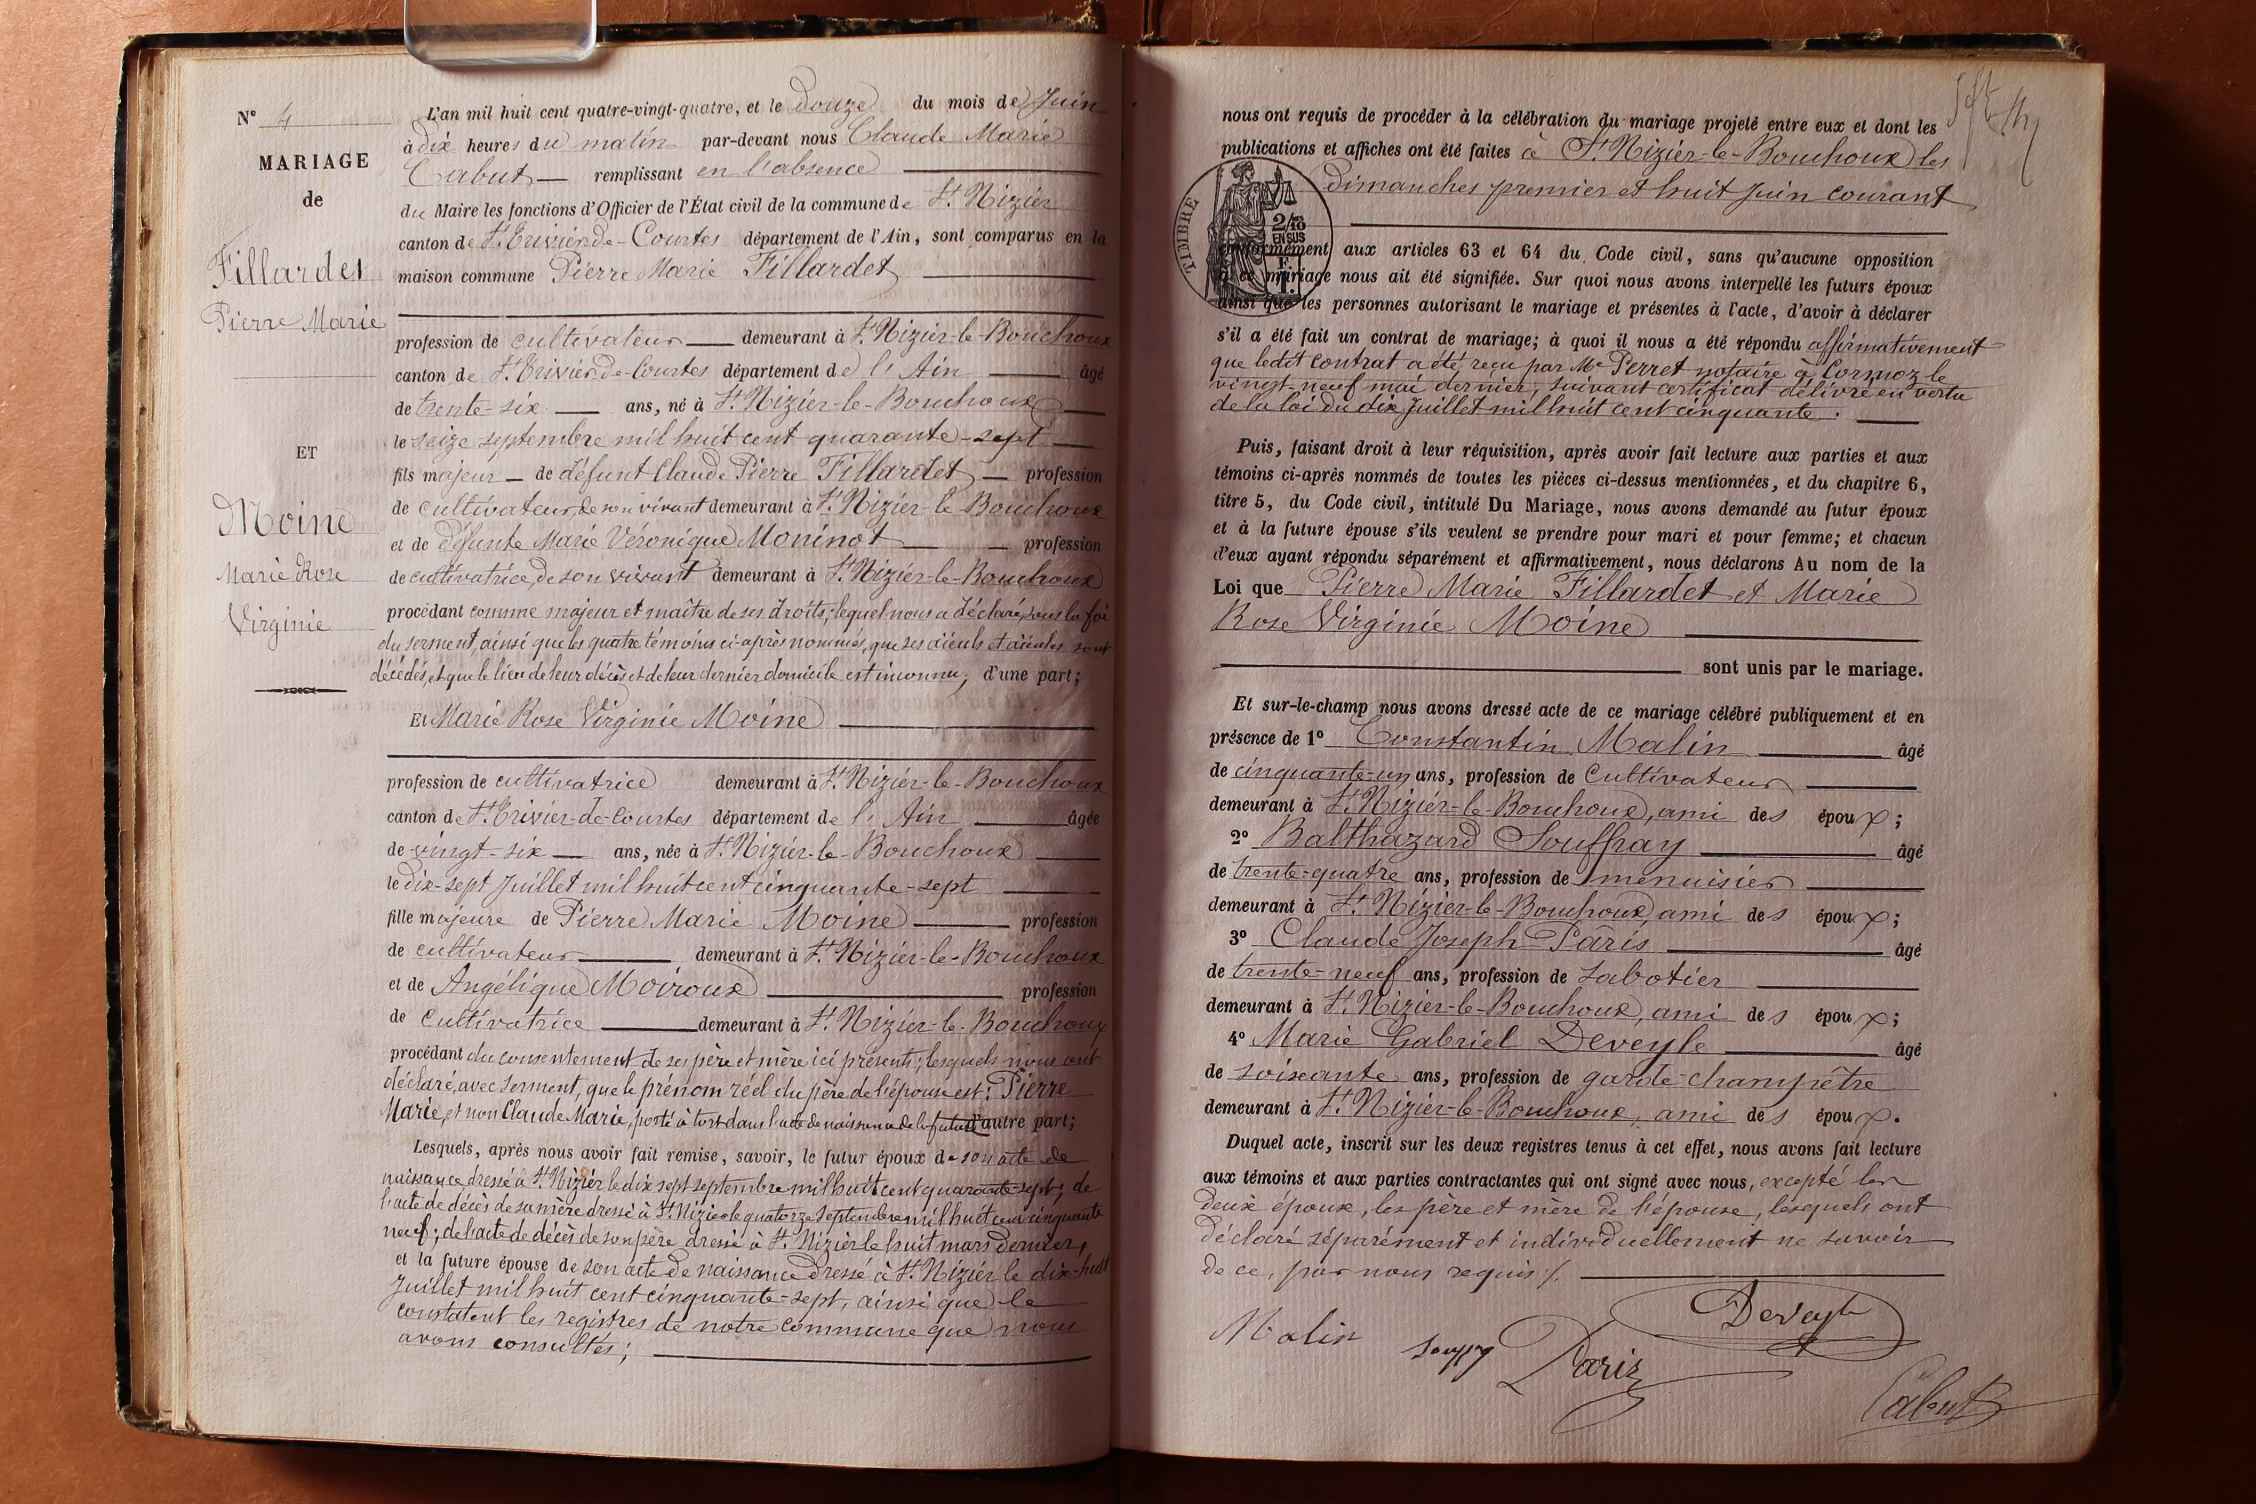 N° 4
MARIAGE
de
Fillardet
Pierre Marie
ET
Moine
Marie Rose
Virginie
L'an mil huit cent quatre-vingt-quatre, et le douze du mois de Juin
à dix heures du matin par-devant nous Claude Marie
Cabut remplissant en l'absence
du Maire les fonctions d'Officier de l'État civil de la commune de St Nizier
canton de St Trivier-de-Courtes département de l'Ain, sont comparus en la
maison commune Pierre Marie Fillardet
profession de cultivateur demeurant à St Nizier-le-Bouchoux
canton de St Trivier-de-Courtes département de l'Ain âgé
de trente-six ans, né à St Nizier-le-Bouchoux
le seize septembre mil huit cent quarante-sept
fils majeur de défunt Claude Pierre Fillardet profession
de cultivateur, de son vivant demeurant à St Nizier-le-Bouchoux
et de défunte Marie Véronique Moninot profession
de cultivatrice, de son vivant demeurant à St Nizier-le-Bouchoux
procédant comme majeur et maître de ses droits; lequel nous a déclaré, sous la foi
du serment, ainsi que les quatre témoins ci-après nommés, que ses aïeuls et aïeules sont
décédés, et que le lieu de leur décès et de leur dernier domicile est inconnu, d'une part;
Et Marie Rose Virginie Moine
profession de cultivatrice demeurant à St Nizier-le-Bouchoux
canton de St Trivier-de-Courtes département de l'Ain âgée
de vingt-six ans, née à St Nizier-le-Bouchoux
le dix-sept Juillet mil huit cent cinquante-sept
fille majeure de Pierre Marie Moine profession
de cultivateur demeurant à St Nizier-le-Bouchoux
et de Angélique Moiroux profession
de cultivatrice demeurant à St Nizier-le-Bouchoux
procédant du consentement de ses père et mère ici présents; lesquels nous ont
déclaré, avec serment, que le prénom réel du père de l'épouse est: Pierre
Marie, et non Claude Marie, porté à tort dans l'acte de naissance de la future d'autre part;
Lesquels, après nous avoir fait remise, savoir, le futur époux de son acte de
naissance dressé à St Nizier le dix sept septembre mil huit cent quarante-sept; de
l'acte de décès de sa mère dressé à St Nizier le quatorze septembre mil huit cent cinquante
neuf; de l'acte de décès de son père dressé à St Nizier le huit mars dernier,
et la future épouse de son acte de naissance dressé à St Nizier le dix-huit
Juillet mil huit cent cinquante-sept, ainsi que le
constatent les registres de notre commune que nous
avons consultés;
nous ont requis de procéder à la célébration du mariage projeté entre eux et dont les
publications et affiches ont été faites à St Nizier-le-Bouchoux les
dimanches premier et huit Juin courant
TIMBRE
2/10
EN SUS
F.
1.
conformément aux articles 63 et 64 du Code civil, sans qu'aucune opposition
à ce mariage nous ait été signifiée. Sur quoi nous avons interpellé les futurs époux
ainsi que les personnes autorisant le mariage et présentes à l'acte, d'avoir à déclarer
s'il a été fait un contrat de mariage; à quoi il nous a été répondu affirmativement
que ledit contrat a été reçu par Me Perret notaire à Cormoz le
vingt-neuf mai dernier, suivant certificat délivré en vertu
de la loi du dix Juillet mil huit cent cinquante.
Puis, faisant droit à leur réquisition, après avoir fait lecture aux parties et aux
témoins ci-après nommés de toutes les pièces ci-dessus mentionnées, et du chapitre 6,
titre 5, du Code civil, intitulé Du Mariage, nous avons demandé au futur époux
et à la future épouse s'ils veulent se prendre pour mari et pour femme; et chacun
d'eux ayant répondu séparément et affirmativement, nous déclarons Au nom de la
Loi que Pierre Marie Fillardet et Marie
Rose Virginie Moine
sont unis par le mariage.
Et sur-le-champ nous avons dressé acte de ce mariage célébré publiquement et en
présence de 1° Constantin Malin âgé
de cinquante-un ans, profession de cultivateur
demeurant à St Nizier-le-Bouchoux, ami des époux;
2° Balthazard Souffray âgé
de trente-quatre ans, profession de menuisier
demeurant à St Nizier-le-Bouchoux, ami des époux;
3° Claude Joseph Pâris âgé
de trente-neuf ans, profession de sabotier
demeurant à St Nizier-le-Bouchoux, ami des époux;
4° Marie Gabriel Deveyle âgé
de soixante ans, profession de garde-champêtre
demeurant à St Nizier-le-Bouchoux, ami des époux.
Duquel acte, inscrit sur les deux registres tenus à cet effet, nous avons fait lecture
aux témoins et aux parties contractantes qui ont signé avec nous, excepté les
deux époux, les père et mère de l'épouse, lesquels ont
déclaré séparément et individuellement ne savoir
de ce, par nous requis ./.
Deveyle
Malin Pariz
Cabut